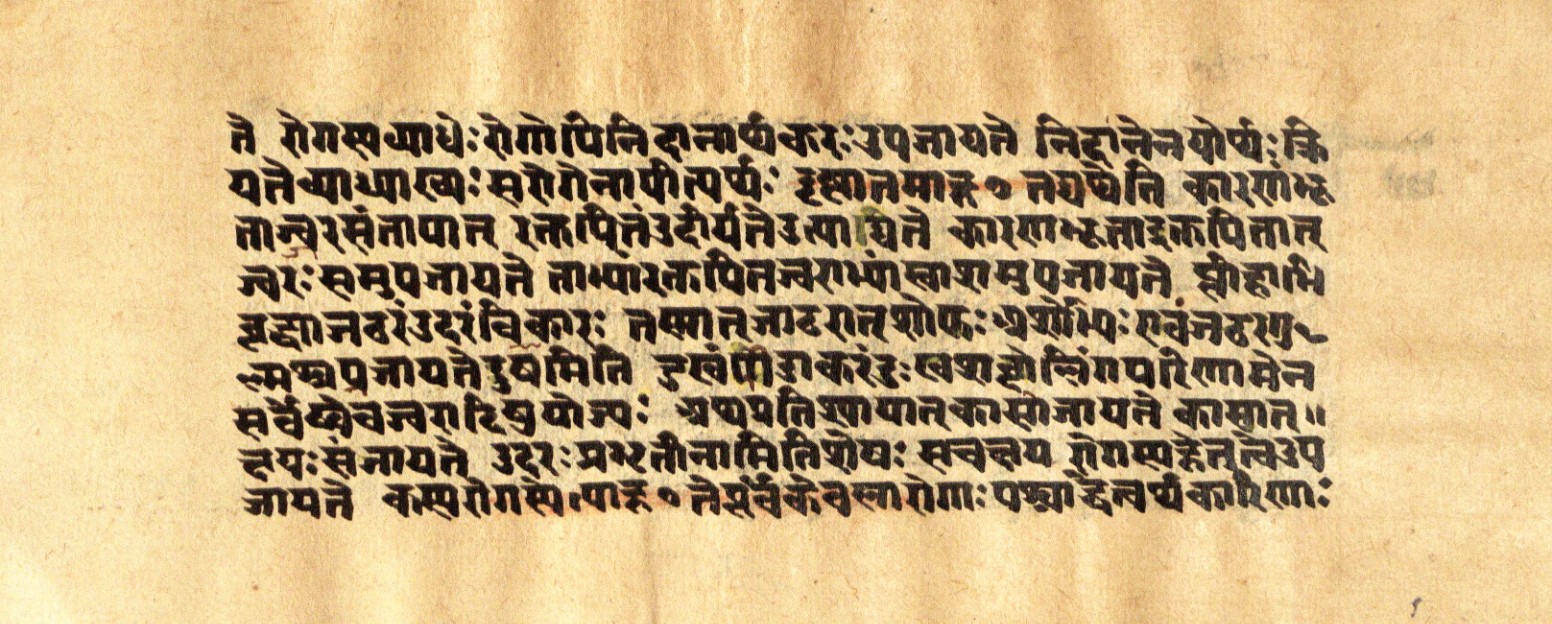 ते रोगस्य व्याधेः रोगोपि निदानार्थकरः उपजायते निदानेन योर्थः क्रि
यते व्याध्याख्यः स रोगेनापीत्यर्थः दृष्टांतमाह ॰ तद्यथेति कारणंभू
ताज्वरसंतापात् रक्तपित्तं उदीर्यते उत्पाद्यिते कारणभूताद्रक्तपित्तात्
ज्वरः समुपजायते ताभ्यारक्तपित्तज्वराभ्यां समुपजायते प्लीहाभि
वृद्ध्याजठरं उदरंविकारः तस्मात जाठरात् शोफः अर्शोभ्यिः जठरगु
ल्मश्चप्रजायते दुषमिति दुखंपीडाकरं दुःख लिंगपरिणामेन
सर्वेष्वेवज्वरादिषुयोज्यः अथप्रतिश्यायात् कासोजायते कासात् ॥
क्षयः संजायते उदरः प्रभृतीनामितिशेषः सचक्षय रोगस्यहेतुत्वेउप
जायते कस्यरोगस्ये त्याह ॰ तेपूर्वंकेवलारोगाः पश्चाद्धेत्वर्थकारिणः